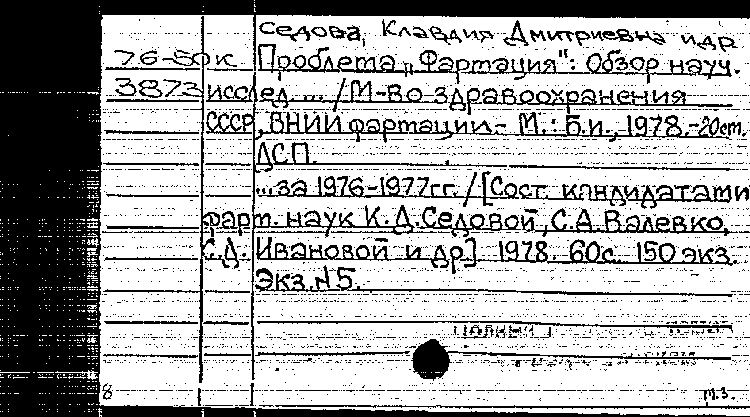 Седова, Клавдия Дмитриевна и др
76-50к Проблема „Фармация": Обзор науч.
3873 исслед. ... / М-во здравоохранения
СССР, ВНИИ фармации.- М.: Б.и., 1978.-20см.
ДСП.
...за 1976-1977гг. / [Сост. кандидатами
фарм. наук К.Д.Седовой, С.А.Валевко,
С.Д. Ивановой и др] 1978. 60с. 150 экз.
Экз.№5.
8
м.з.